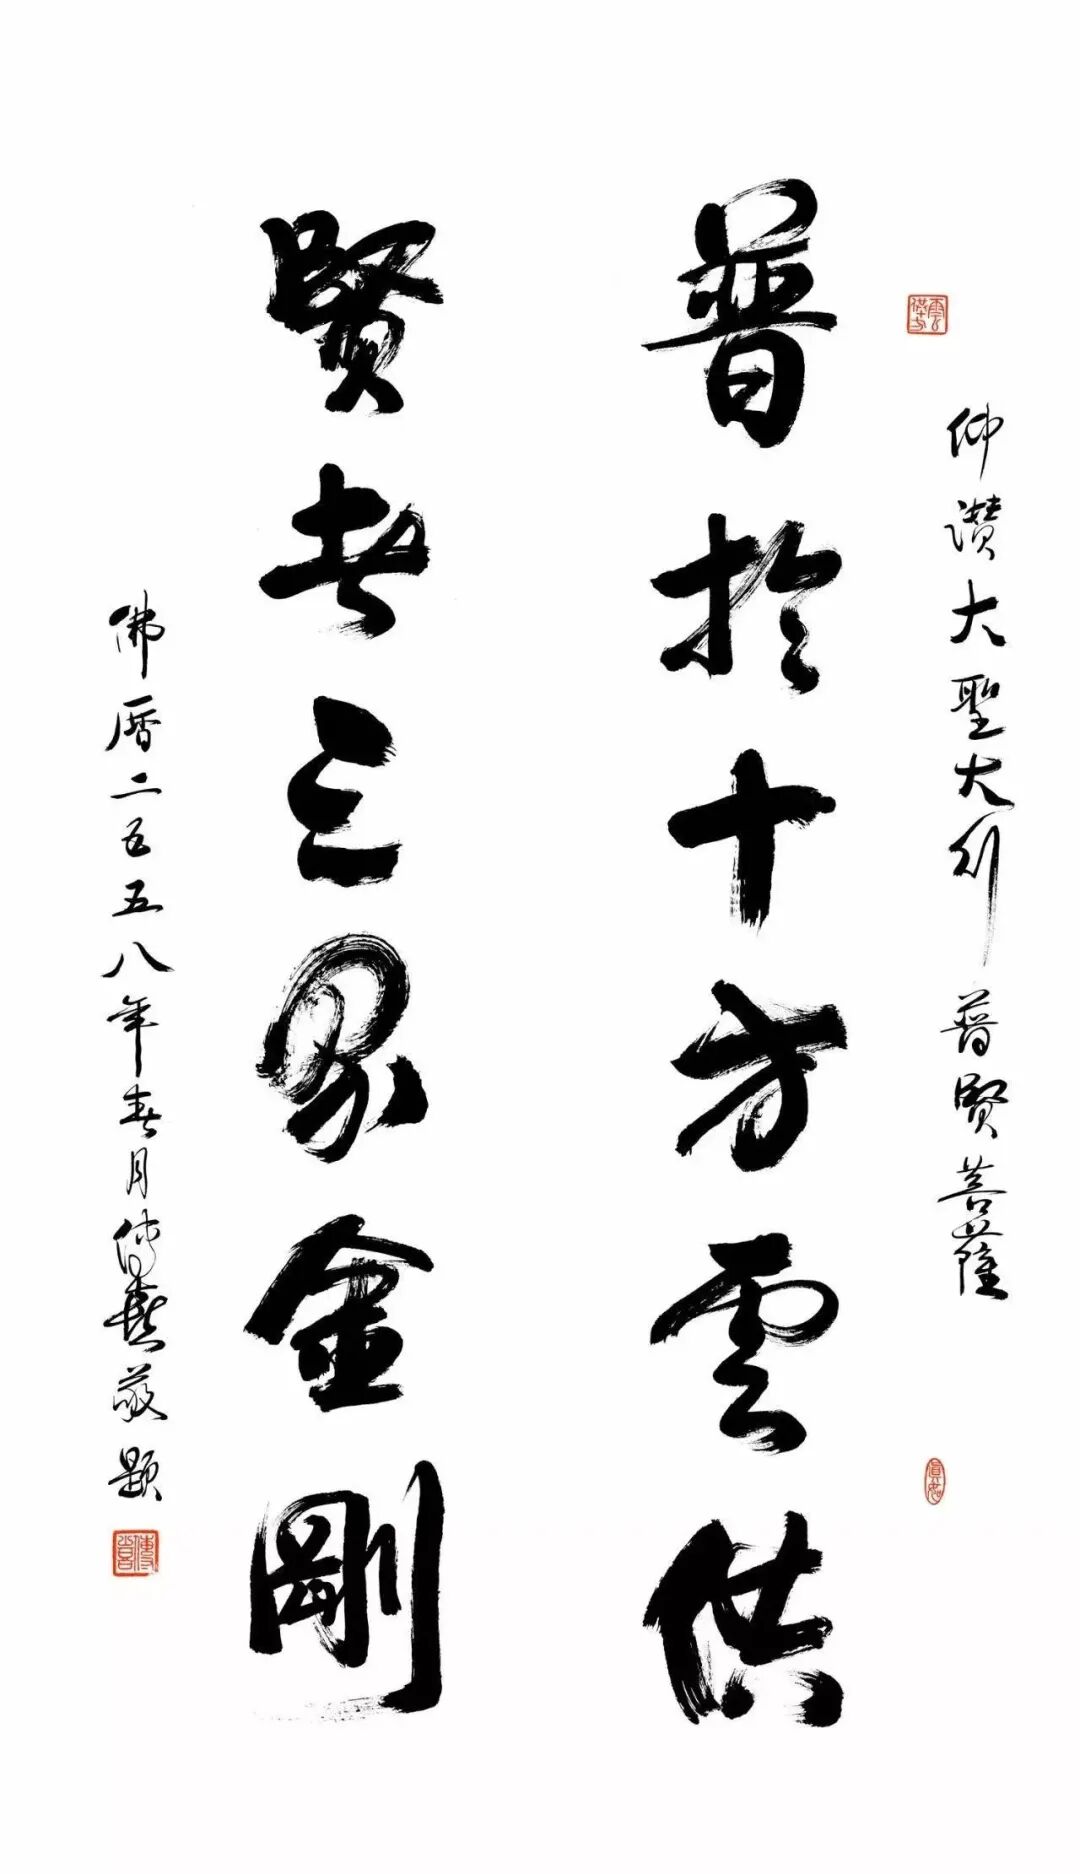 仰讚大聖大行普賢菩薩
普於十方雲供
賢超三界金剛
佛曆二五五八年春月傳喜敬題
傳喜